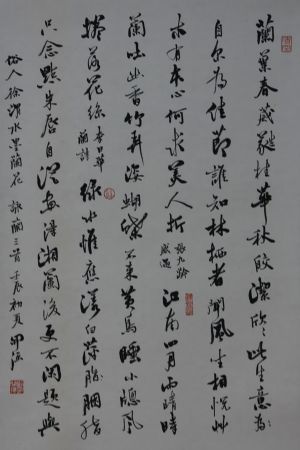 蘭葉春葳蕤桂華秋皎潔欣欣此生意
自尔為佳節誰知林栖者聞風坐相悦草
木有本心何求美人折 張九齡感遇 江南四月雨晴時
蘭吐幽香竹弄姿蝴蝶不來黄鳥睡小窗風
捲落花絲 李日華蘭詩 緑水惟應漾白蘋胭脂
只念點朱唇自從畫得湘蘭後更不閑題與
俗人徐渭水墨蘭花 詠蘭三首 壬辰初夏